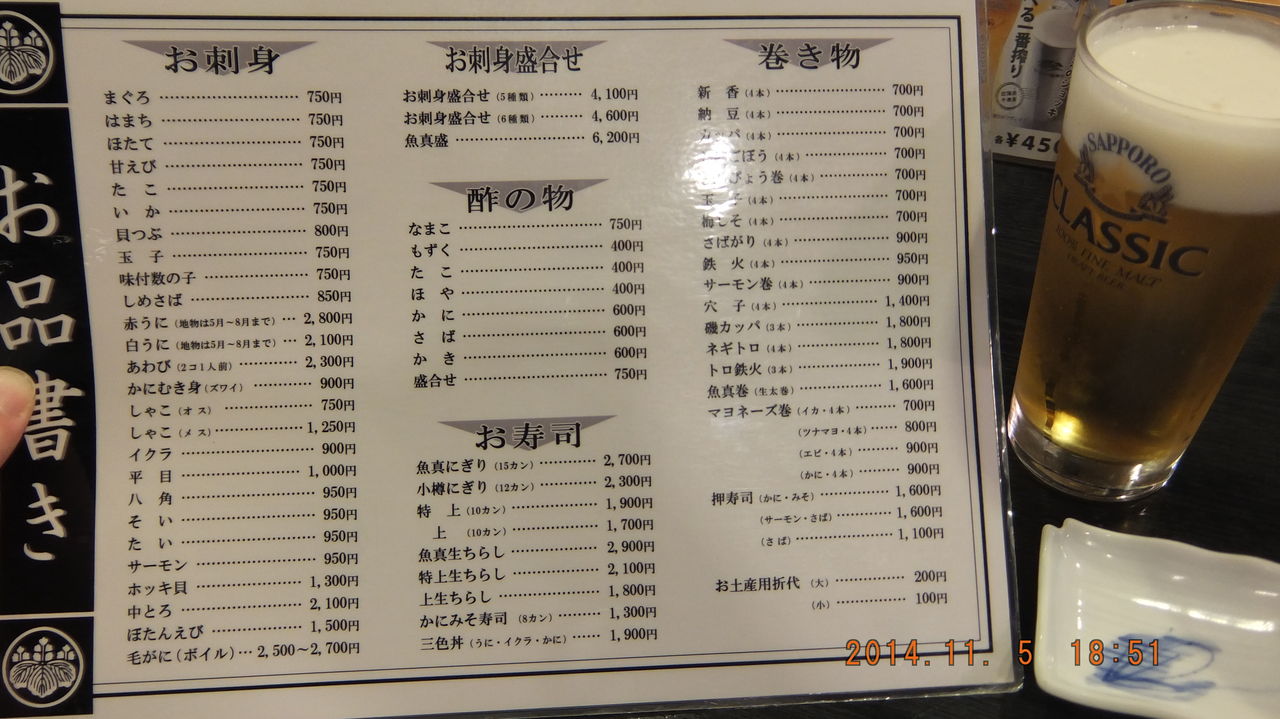 お品書き
お刺身
まぐろ 750円
はまち 750円
ほたて 750円
甘えび 750円
たこ 750円
いか 750円
貝つぶ 800円
玉子 750円
味付数の子 750円
しめさば 850円
赤うに(地物は5月〜8月まで) 2,800円
白うに(地物は5月〜8月まで) 2,100円
あわび(2コ1人前) 2,300円
かにむき身(ズワイ) 900円
しゃこ(オス) 750円
しゃこ(メス) 1,250円
イクラ 900円
平目 1,000円
八角 950円
そい 950円
たい 950円
サーモン 950円
ホッキ貝 1,300円
中とろ 2,100円
ぼたんえび 1,500円
毛がに(ボイル) 2,500〜2,700円
お刺身盛合せ
お刺身盛合せ(5種類) 4,100円
お刺身盛合せ(6種類) 4,600円
魚真盛 6,200円
酢の物
なまこ 750円
もずく 400円
たこ 400円
ほや 400円
かに 600円
さば 600円
かき 600円
盛合せ 750円
お寿司
魚真にぎり(15カン) 2,700円
小樽にぎり(12カン) 2,300円
特上(10カン) 1,900円
上(10カン) 1,700円
魚真生ちらし 2,900円
特上生ちらし 2,100円
上生ちらし 1,800円
かにみそ寿司(8カン) 1,300円
三色丼(うに・イクラ・かに) 1,900円
巻き物
新香(4本) 700円
納豆(4本) 700円
カッパ(4本) 700円
ごぼう(4本) 700円
ぴょう巻(4本) 700円
玉子(4本) 700円
梅しそ(4本) 700円
さばがり(4本) 900円
鉄火(4本) 950円
サーモン巻(4本) 900円
穴子(4本) 1,400円
磯カッパ(3本) 1,800円
ネギトロ(4本) 1,800円
トロ鉄火(3本) 1,900円
魚真巻(生太巻) 1,600円
マヨネーズ巻(イカ・4本) 700円
(ツナマヨ・4本) 800円
(エビ・4本) 900円
(かに・4本) 900円
押寿司(かに・みそ) 1,600円
(サーモン・さば) 1,600円
(さば) 1,100円
お土産用折代(大) 200円
(小) 100円
る一番搾り
各¥450
SAPPORO
CLASSIC
100% FINE MALT
CRAFT BEER
2014.11. 5 18:51